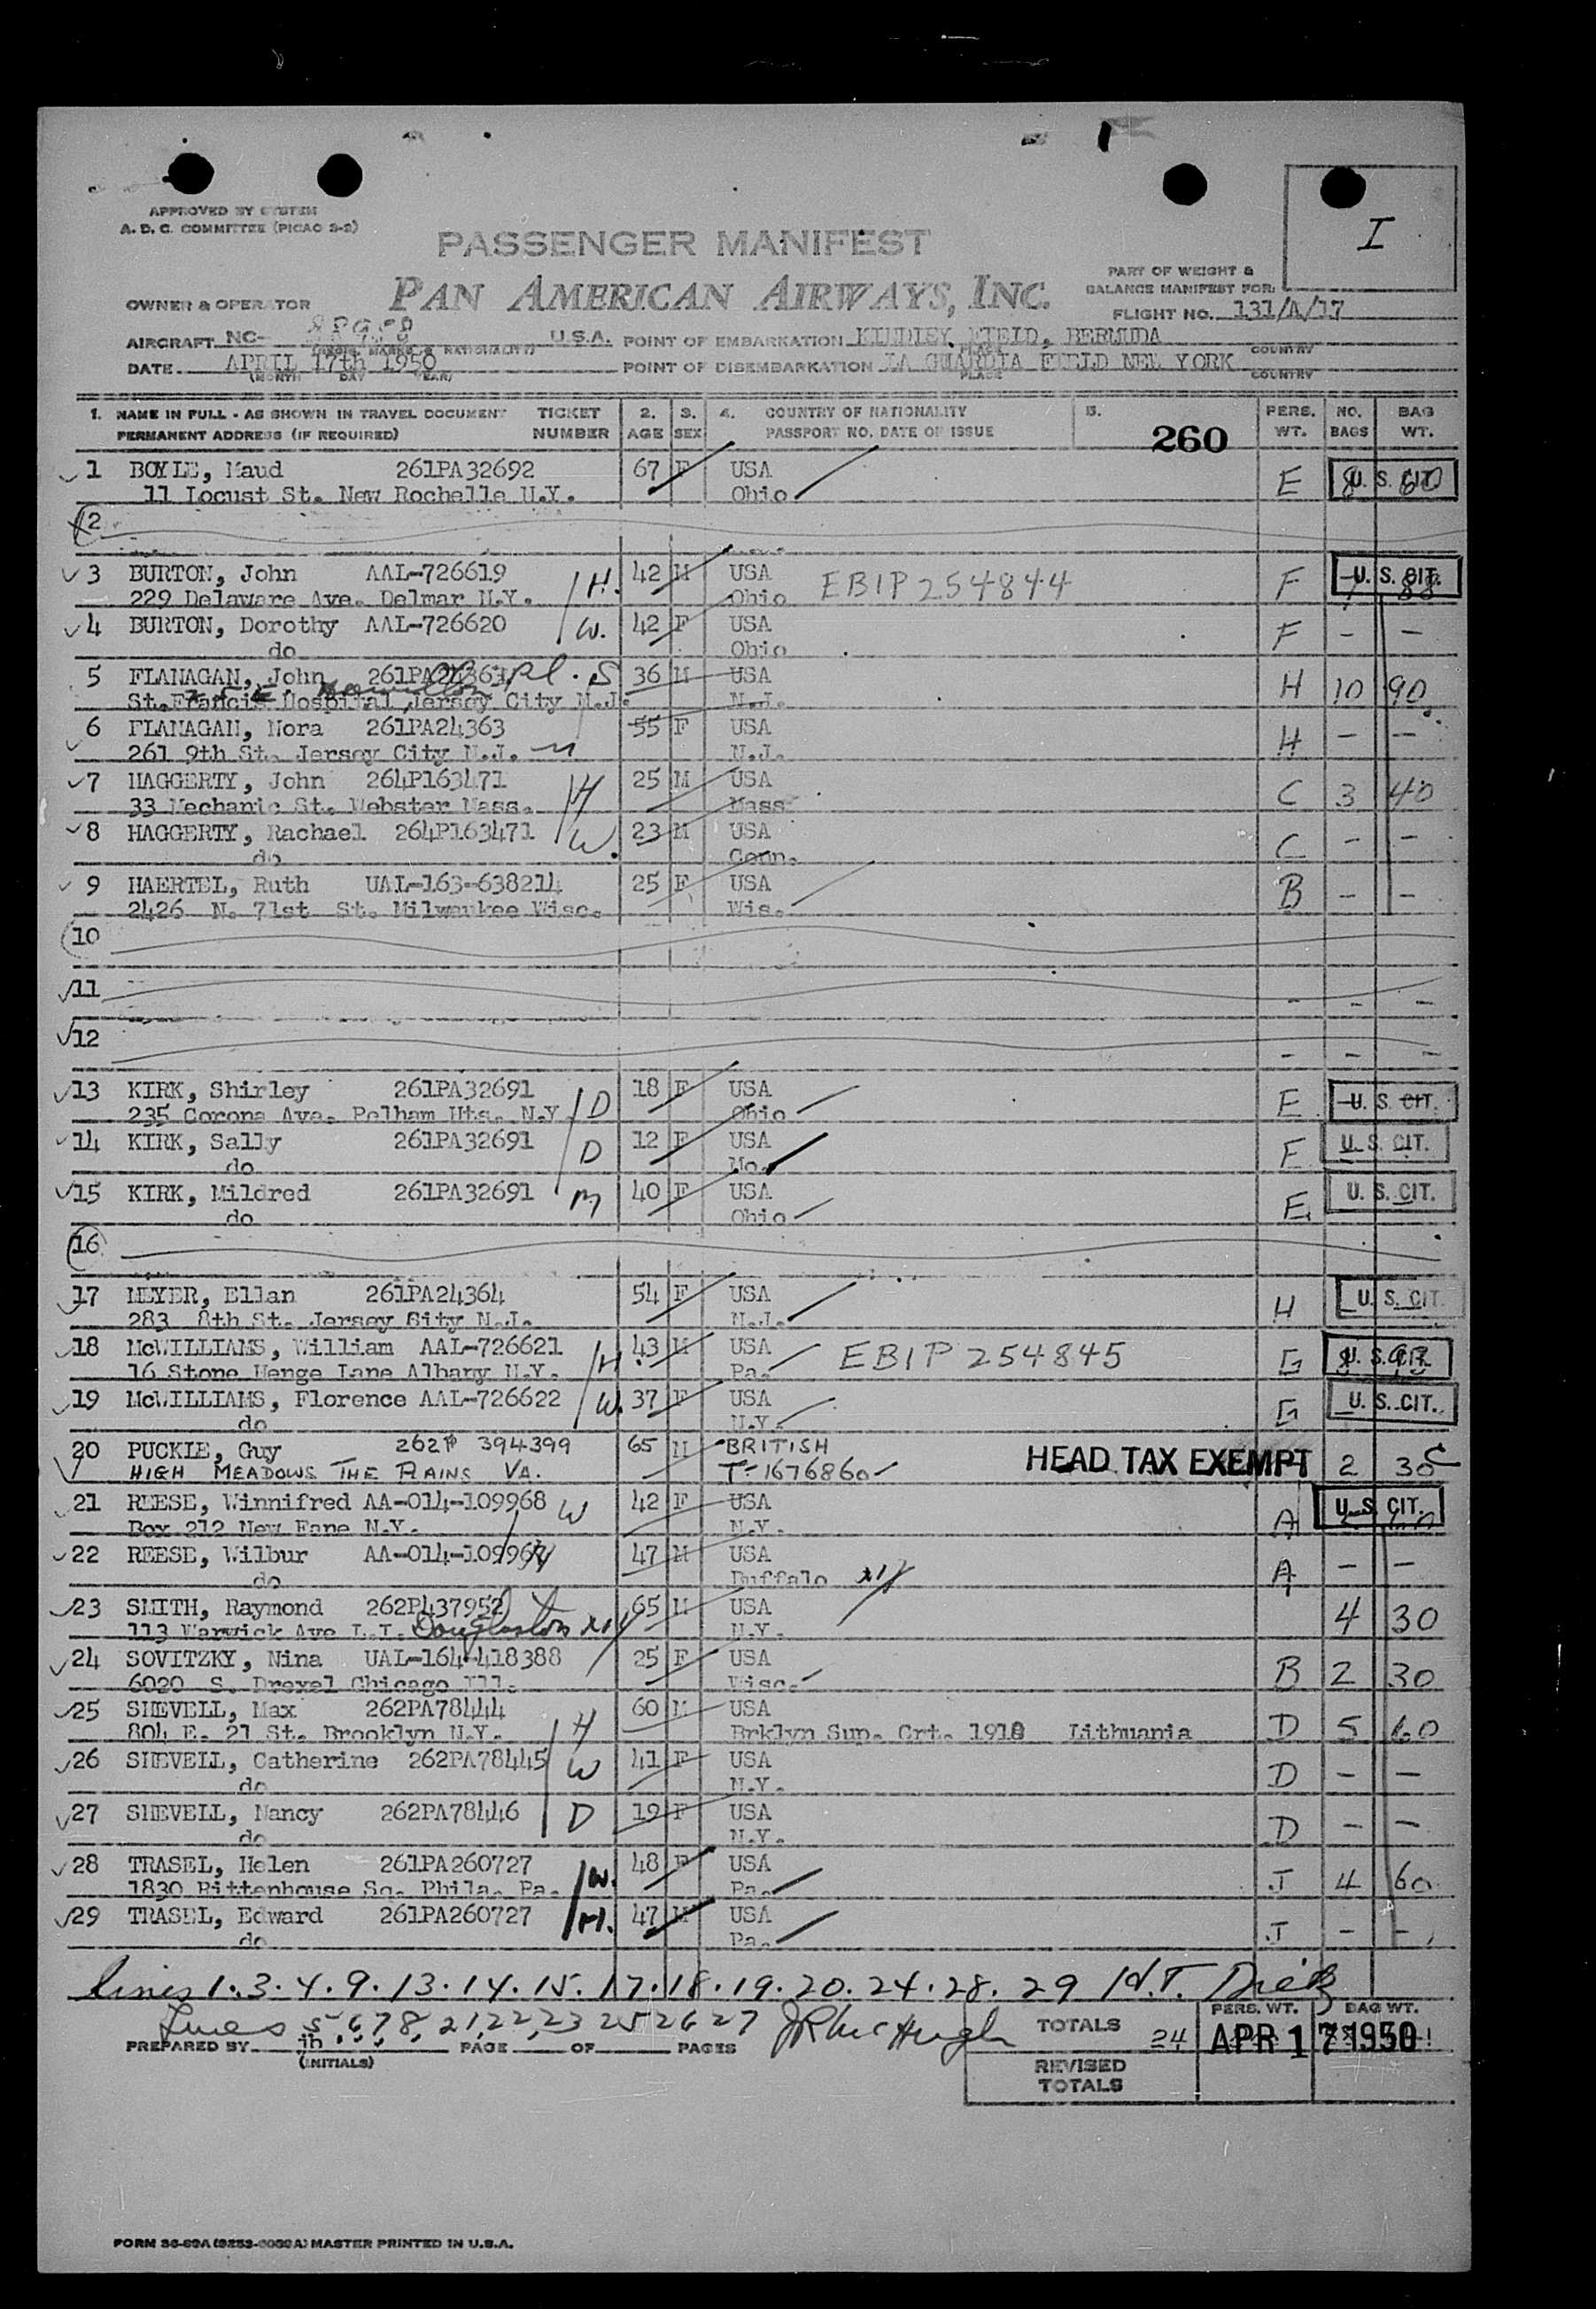 I
APPROVED BY SYSTEM
A. D. C. COMMITTEE (PICAO S-2)
PASSENGER MANIFEST
PART OF WEIGHT &
BALANCE MANIFEST FOR:
OWNER & OPERATOR PAN AMERICAN AIRWAYS, INC.
FLIGHT NO. 131/A/17
AIRCRAFT NC- U.S.A. POINT OF EMBARKATION KINDLEY FIELD, BERMUDA
(REGIS. MARKS & NATIONALITY) PLACE COUNTRY
DATE APRIL 17th 1950 POINT OF DISEMBARKATION LA GUARDIA FIELD NEW YORK
(MONTH DAY YEAR) PLACE COUNTRY
1. NAME IN FULL - AS SHOWN IN TRAVEL DOCUMENT TICKET 2. 3. 4. COUNTRY OF NATIONALITY 5. PERS. NO. BAG
PERMANENT ADDRESS (IF REQUIRED) NUMBER AGE SEX PASSPORT NO. DATE OF ISSUE 260 WT. BAGS WT.
1 BOYLE, Maud 261PA32692 67 F USA E U. S. CIT.
11 Locust St. New Rochelle N.Y. Ohio
2
3 BURTON, John AAL-726619 H. 42 M USA EBIP254844 F U. S. CIT. 88
229 Delaware Ave. Delmar N.Y. Ohio
4 BURTON, Dorothy AAL-726620 W. 42 F USA F - -
do Ohio
5 FLANAGAN, John 261PA24363 Pl. S 36 M USA H 10 90
St. Francis Hospital Jersey City N.J. N.J.
6 FLANAGAN, Nora 261PA24363 55 F USA H - -
261 9th St. Jersey City N.J. M N.J.
7 HAGGERTY, John 264P163471 H 25 M USA C 3 40
33 Mechanic St. Webster Mass. Mass
8 HAGGERTY, Rachael 264P163471 W. 23 M USA C - -
do Conn.
9 HAERTEL, Ruth UAL-163-638214 25 F USA B - -
2426 N. 71st St. Milwaukee Wisc. Wis.
10
11 - - -
12 - - -
13 KIRK, Shirley 261PA32691 D 18 F USA E U. S. CIT.
235 Corona Ave. Pelham Hts. N.Y. Ohio
14 KIRK, Sally 261PA32691 D 12 F USA E U. S. CIT.
do Mo.
15 KIRK, Mildred 261PA32691 M 40 F USA E U. S. CIT.
do Ohio
16
17 MEYER, Ellan 261PA24364 54 F USA H U. S. CIT.
283 8th St. Jersey City N.J. N.J.
18 McWILLIAMS, William AAL-726621 H. 43 M USA EBIP254845 G U. S. CIT.
16 Stone Henge Lane Albany N.Y. Pa.
19 McWILLIAMS, Florence AAL-726622 W. 37 F USA G U. S. CIT.
do N.Y.
20 PUCKLE, Guy 262P 394399 65 M BRITISH HEAD TAX EXEMPT 2 30 C
HIGH MEADOWS THE PLAINS VA. T-1676860
21 REESE, Winnifred AA-014-109968 W 42 F USA A U. S. CIT.
Box 212 New Fane N.Y. N.Y.
22 REESE, Wilbur AA-014-109967 H 47 M USA A - -
do Buffalo NY
23 SMITH, Raymond 262P437952 65 M USA 4 30
113 Warwick Ave L.I. Douglaston NY N.Y.
24 SOVITZKY, Nina UAL-164-418388 25 F USA B 2 30
6020 S. Drexel Chicago Ill. Wisc.
25 SHEVELL, Max 262PA78444 H 60 M USA D 5 60
804 E. 21 St. Brooklyn N.Y. Brklyn Sup. Crt. 1918 Lithuania
26 SHEVELL, Catherine 262PA78445 W 41 F USA D - -
do N.Y.
27 SHEVELL, Nancy 262PA78446 D 19 F USA D - -
do N.Y.
28 TRASEL, Helen 261PA260727 W. 48 F USA J 4 60
1830 Rittenhouse Sq. Phila. Pa. Pa.
29 TRASEL, Edward 261PA260727 H. 47 M USA J - -
do Pa.
lines 1.3.4.9.13.14.15.17.18.19.20.24.28.29 H.T.
Lines 5 6 7 8, 21, 22, 23 25 26 27 JR McHugh
PREPARED BY jb PAGE OF PAGES
(INITIALS)
TOTALS 24 PERS. WT. BAG WT.
APR 17 1950
REVISED
TOTALS
FORM 36-69A (9253-6039A) MASTER PRINTED IN U.S.A.